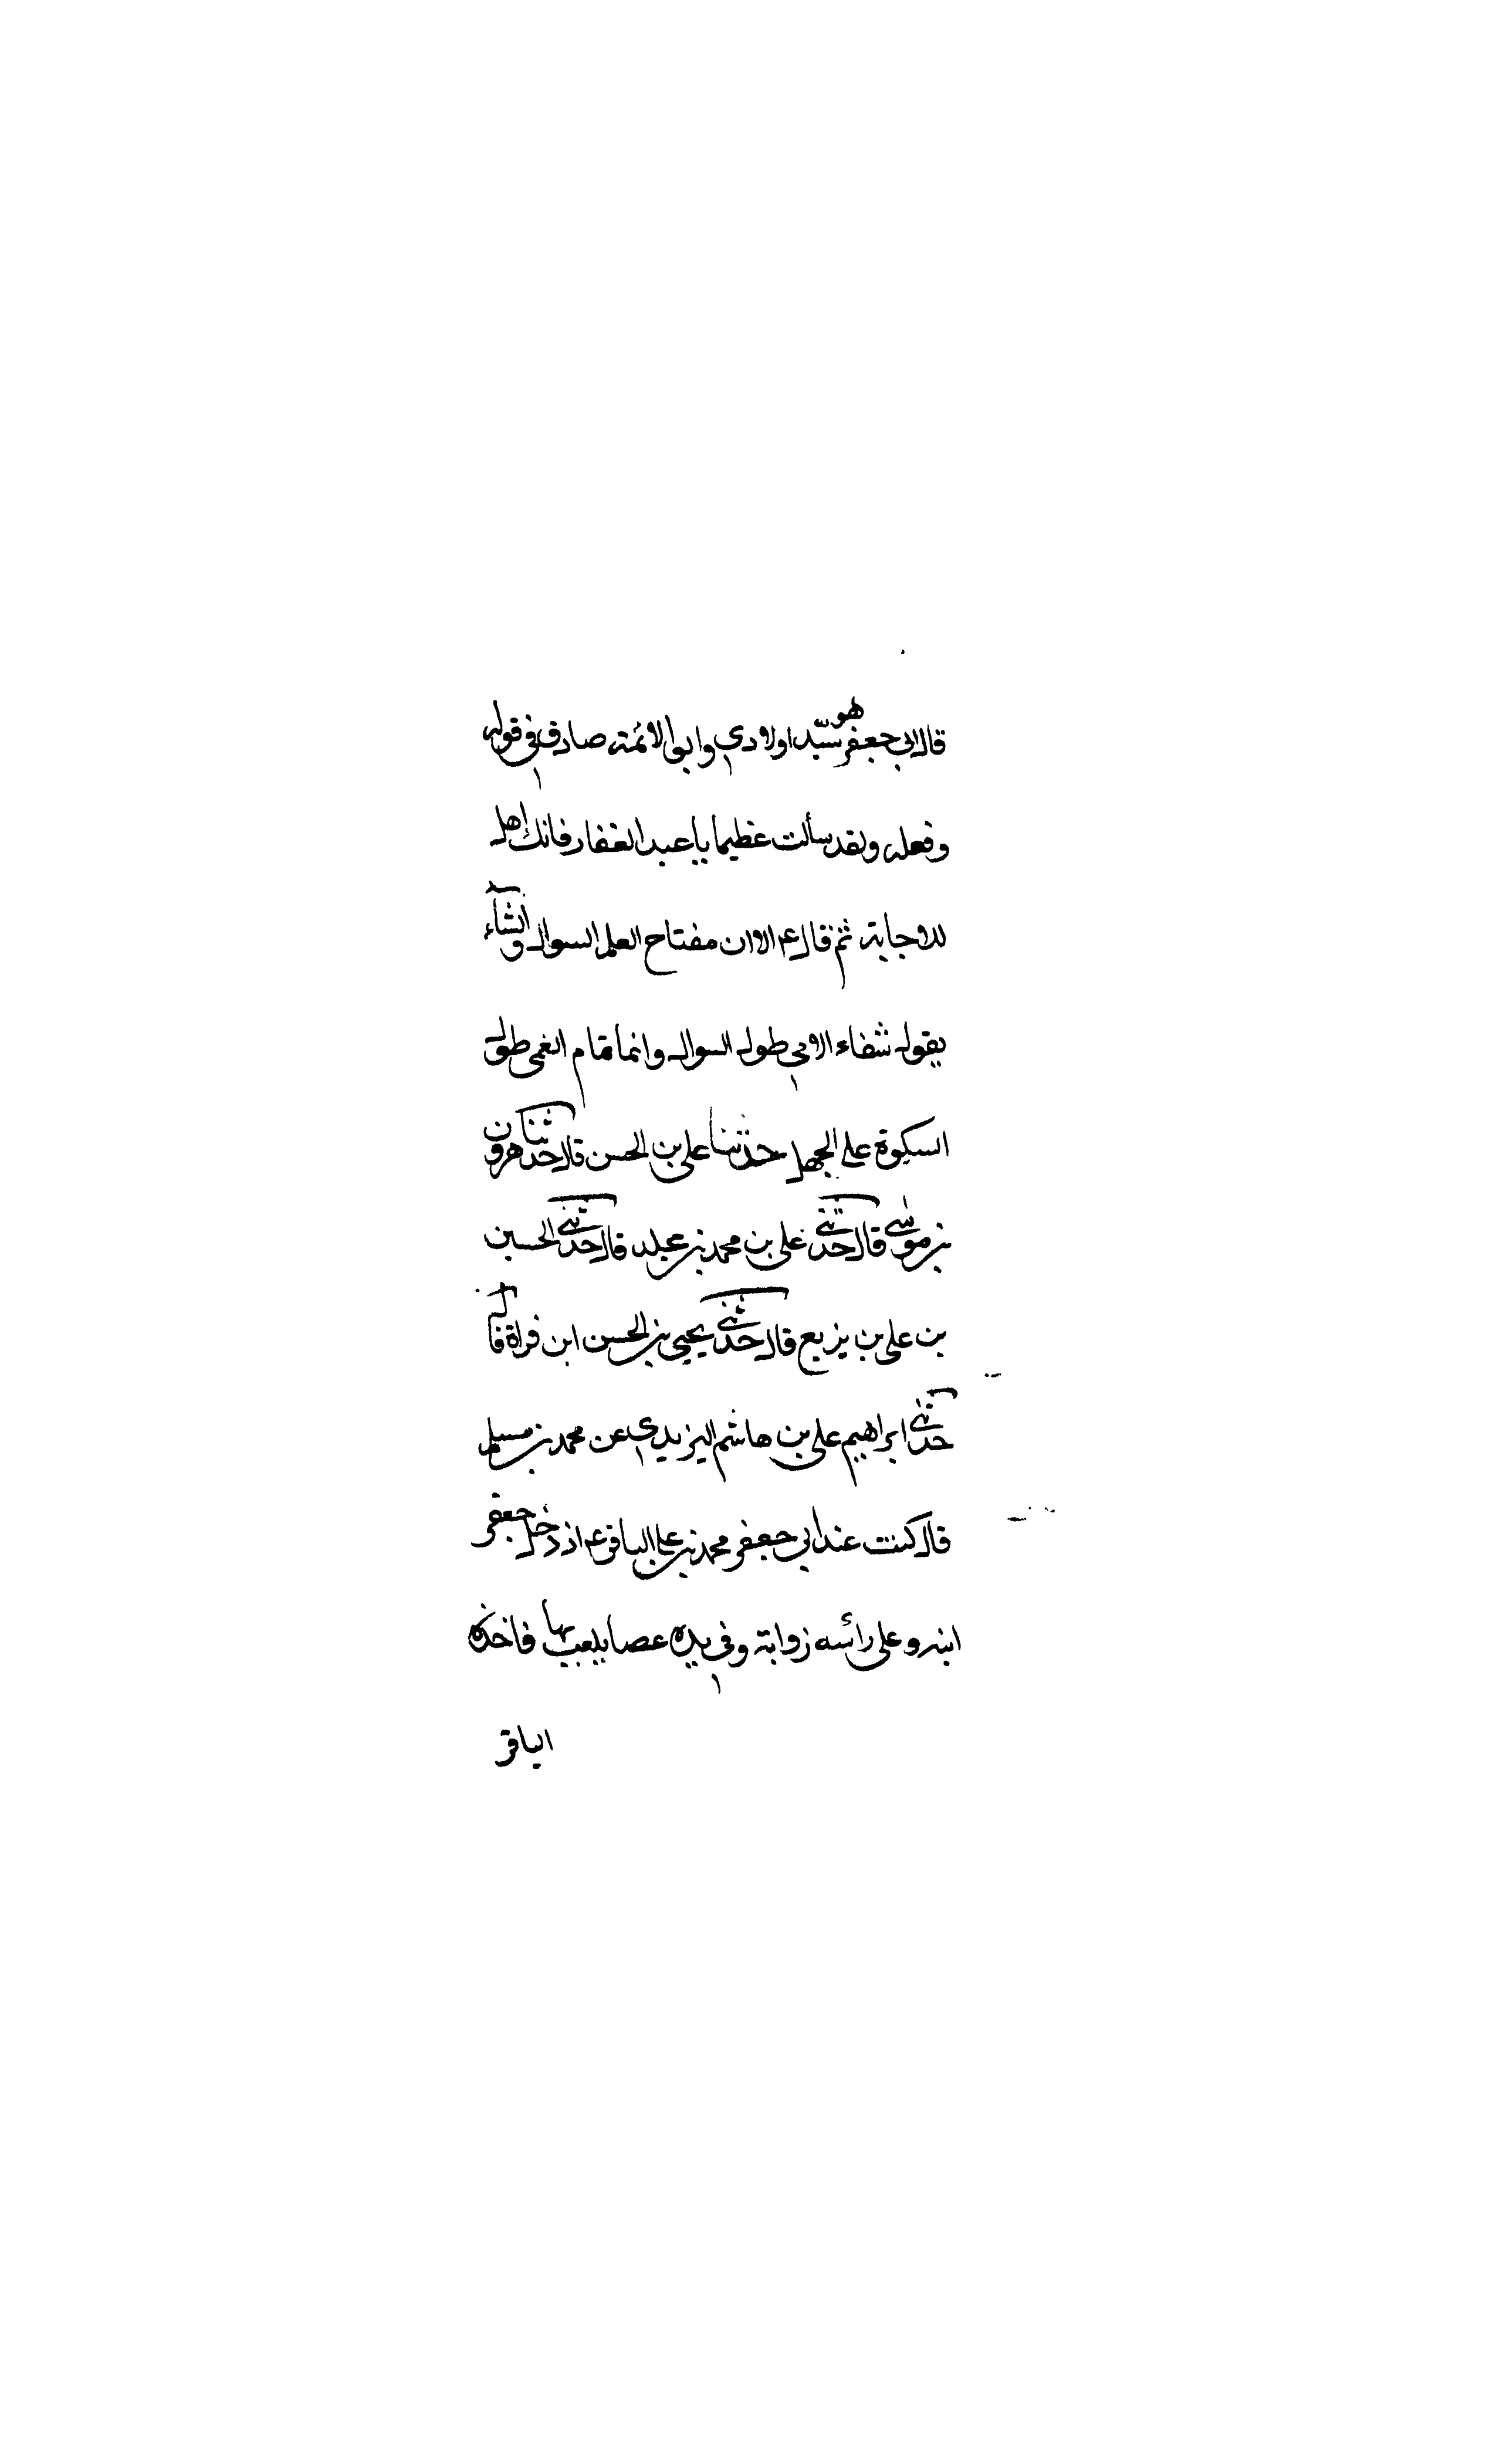 قال ابي جعفر هو سيّد اولادي وابوا الائمة صادق في قوله
وفعله ولقد سألت عظيما يا عبد الغفار فانك اهل
للاجابة ثم قال ع الا ان مفتاح العلم السوال وانشاء
يقول شفاء الامي طول السوال وانما تمام العمى طول
السكوة على الجهل حدثنا علي بن الحسن قال حدثنا هرون
بن موسى قال حدثني علي بن محمد بن عبد الله قال حدثني الحسين
بن علي بن بزيع قال حدثني يحيى بن الحسن ابن فراة قال
حدثني ابراهيم علي بن هاشم اليزيدي عن محمد بن مسلم
قال كنت عند ابي جعفر محمد بن علي الباقر ع اذ دخل جعفر
ابنه وعلى رائسه زوابة وفي يده عصا يلعب بها فاخذه
الباقر